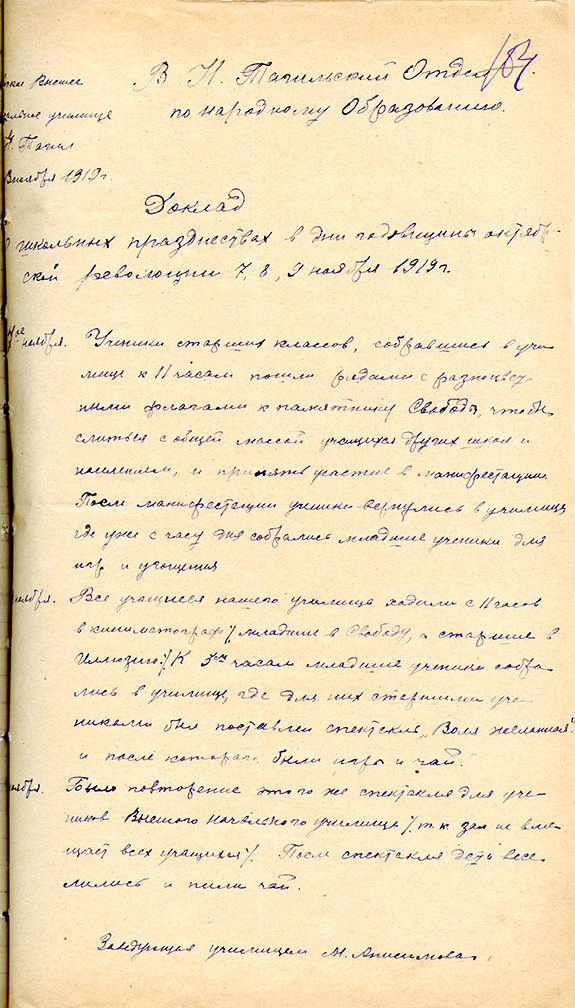 В Н. Тагильский Отдел
по народному Образованию.
184.
Высшее
училище
Тагил
ноября 1919 г.
Доклад
школьных празднествах в дни годовщины октябрь-
ской революции 7, 8, 9 ноября 1919 г.
ноября. Ученики старших классов, собравшись в учи-
лище к 11 часам пошли рядами с разноцвет
ными флагами к памятнику Свободы, чтобы
слиться с общей массой учащихся других школ и
населением, и принять участие в манифестации
После манифестации ученики вернулись в училище
где уже с часу дня собрались младшие ученики для
игр и угощения
ноября. Все учащиеся нашего училища ходили с 11 часов
в кинематограф /младшие в Свободу, а старшие в
Иллюзию./ К 5ти часам младшие ученики собра-
лись в училище, где для них старшими уче-
никами был поставлен спектакль „Воля желанная"
и после которого были игры и чай.
ноября. Было повторение этого же спектакля для уче-
ников Высшего Начального училища /т. к. зал не вме-
щает всех учащихся/. После спектакля дети весе-
лились и пили чай.
Заведующая училищем М. Анисимова.